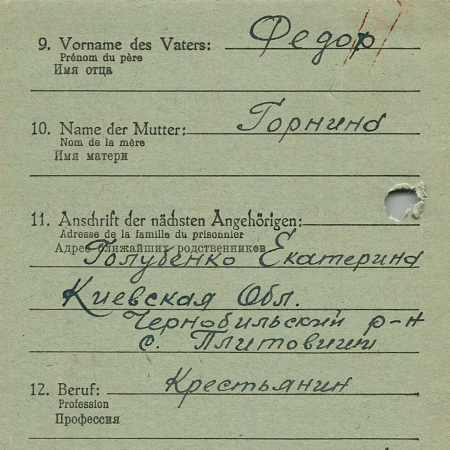 9. Vorname des Vaters: Федор
Prénom du père
Имя отца
10. Name der Mutter: Горнина
Nom de la mère
Имя матери
11. Anschrift der nächsten Angehörigen:
Adresse de la famille du prisonnier
Адрес ближайших родственников
Голубенко Екатерина
Киевская Обл.
Чернобильский р-н
с. Плитовищи
12. Beruf: Крестьянин
Profession
Профессия